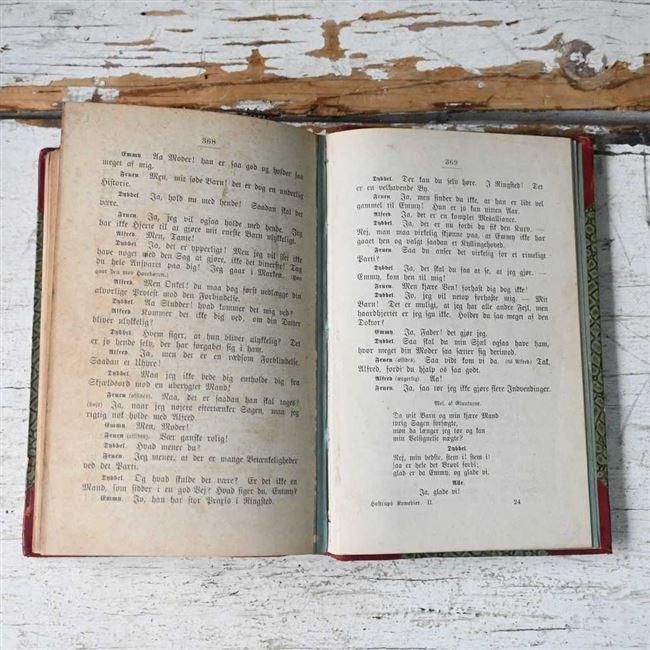 368
Emmy. Aa Moder! han er saa god og holder saa
meget af mig.
Fruen. Men, mit søde Barn! det er dog en underlig
Historie.
Dybbel. Ja, hold nu med hende! Saadan skal det
være.
Fruen. Ja, jeg vil ogsaa holde med hende. Jeg
har ikke Hjerte til at gjøre mit eneste Barn ulykkeligt.
Alfred. Men, Tante!
Dybbel. Ja, det er ypperligt! Men jeg vil slet ikke
have noget med den Sag at gjøre, ikke det bitterste! Tag
du hele Ansvaret paa dig! Jeg gaar i Marken. (Han
gaar den mod Hoveddøren).
Alfred. Men Onkel! du maa dog først nedlægge din
alvorlige Protest mod den Forbindelse.
Dybbel. Aa Sludder! hvad kommer det mig ved?
Alfred. Kommer det ikke dig ved, om din Datter
bliver ulykkelig?
Dybbel. Hvem siger, at hun bliver ulykkelig? Det
er jo hende selv, der har forgabet sig i ham.
Alfred. Ja, men det er en rædsom Forblindelse.
Saadan et Uhyre!
Dybbel. Man jeg ikke bede dig entholde dig fra
Skjældsord mod en uberygtet Mand!
Fruen (afsides). Naa, det er saadan han skal tages?
(højt) Ja, naar jeg nøjere eftertænker Sagen, maa jeg
rigtig nok holde med Alfred.
Emmy. Men, Moder!
Fruen (afsides). Vær ganske rolig!
Dybbel. Hvad mener du?
Fruen. Jeg mener, at der er mange Betænkeligheder
ved det Parti.
Dybbel. Og hvad skulde det være? Er det ikke en
Mand, som sidder i en god Vej? Hvad siger du, Emmy?
Emmy. Jo, han har stor Praxis i Ringsted.
369
Dybbel. Der kan du selv høre. I Ringsted! Det
er en velhavende By.
Fruen. Ja, men finder du ikke, at han er lidt vel
gammel til Emmy! Hun er jo kun nitten Aar.
Alfred. Ja, det er en komplet Mesalliance.
Dybbel. Ja, det er nu fordi du fik den Kurv. —
Nej, man maa virkelig skjønne paa, at Emmy ikke har
gaaet hen og valgt saadan et Kyllingehoved.
Fruen. Saa du anser det virkelig for et rimeligt
Parti!
Dybbel. Ja, det skal du faa at se, at jeg gjør. —
Emmy, kom hen til mig!
Fruen. Men kjære Ven! forhast dig dog ikke!
Dybbel. Jo, jeg vil netop forhaste mig. — Mit
Barn! Det er muligt, at jeg har alle andre Fejl, men
haardhjertet er jeg ign ikke. Holder du saa meget af den
Doktor?
Emmy. Ja, Fader! det gjør jeg.
Dybbel. Saa skal du min Sjæl ogsaa have ham,
hvor meget din Moder saa sætter sig derimod.
Fruen (afsides). Saa vidt kom vi da. (til Alfred) Tak,
Alfred, fordi du hjalp os saa godt.
Alfred (ærgerlig). Aa!
Fruen. Ja, saa tør jeg ikke gjøre flere Indvendinger.
Mel. af Alunturene.
Da mit Barn og min kjære Mand
ivrig Sagen forfægte,
mon da længer jeg tør og kan
min Velsignelse nægte?
Dybbel.
Nej, min bedste, stem i! stem i!
saa er hele det Vrøvl forbi;
glad er da Emmy, og glade vi.
Alle.
Ja, glade vi!
Hostrups Komedier. II. 24